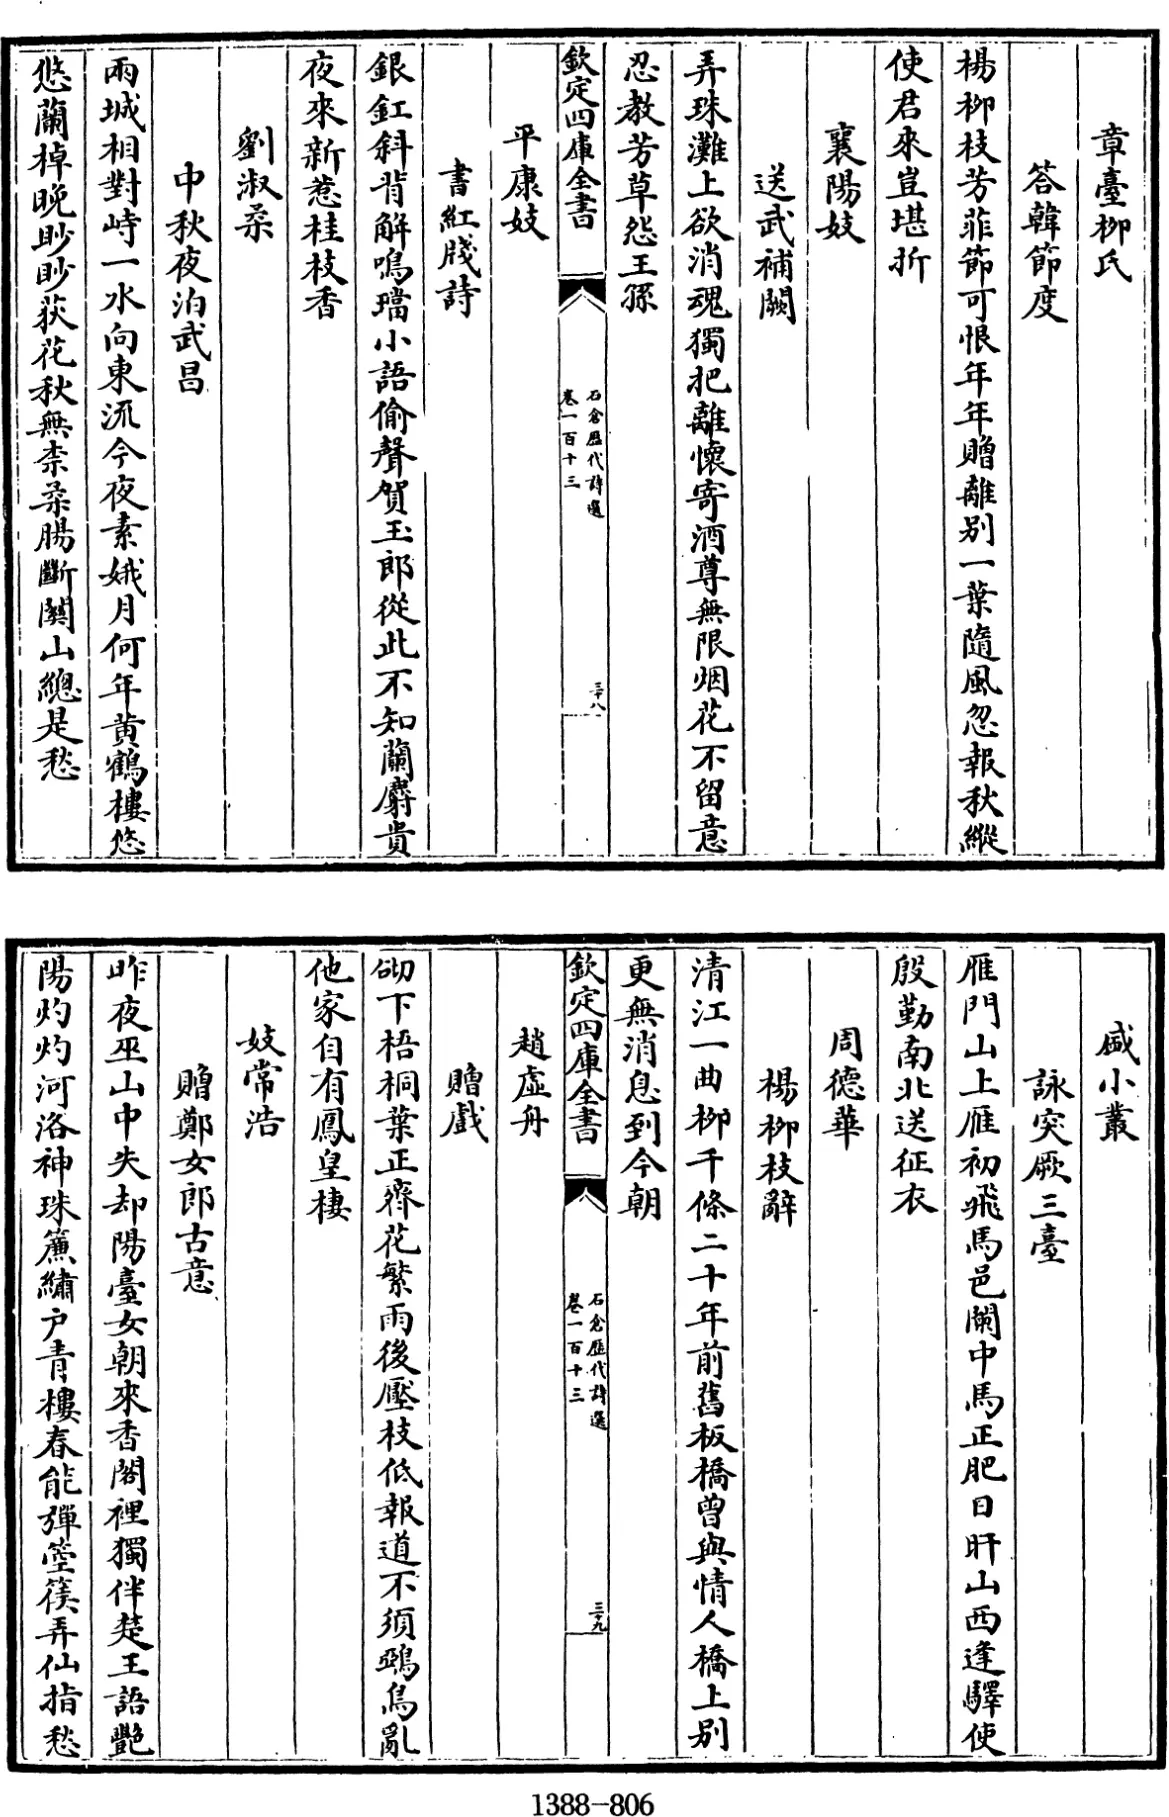 章臺柳氏
答韓節度
楊柳枝芳菲節可恨年年贈離別一葉隨風忽報秋縱
使君來豈堪折
襄陽妓
送武補闕
弄珠灘上欲消魂獨把離懷寄酒尊無限烟花不留意
忍教芳草怨王孫
欽定四庫全書
石倉歷代詩選
卷一百十三
三十八
平康妓
書紅牋詩
銀釭斜背解鳴璫小語偷聲賀玉郎從此不知蘭麝貴
夜來新惹桂枝香
劉淑柔
中秋夜泊武昌
兩城相對峙一水向東流今夜素娥月何年黃鶴樓悠
悠蘭棹晚眇眇荻花秋無柰柔腸斷關山總是愁
盛小叢
詠突厥三臺
雁門山上雁初飛馬邑闌中馬正肥日旰山西逢驛使
殷勤南北送征衣
周德華
楊柳枝辭
清江一曲柳千條二十年前舊板橋曾與情人橋上別
更無消息到今朝
欽定四庫全書
石倉歷代詩選
卷一百十三
三十九
趙虛舟
贈戲
砌下梧桐葉正齊花繁雨後壓枝低報道不須鵶鳥亂
他家自有鳳皇棲
妓常浩
贈鄭女郎古意
昨夜巫山中失却陽臺女朝來香閣裡獨伴楚王語艷
陽灼灼河洛神珠簾繡戶青樓春能彈箜篌弄仙指愁
1388-806